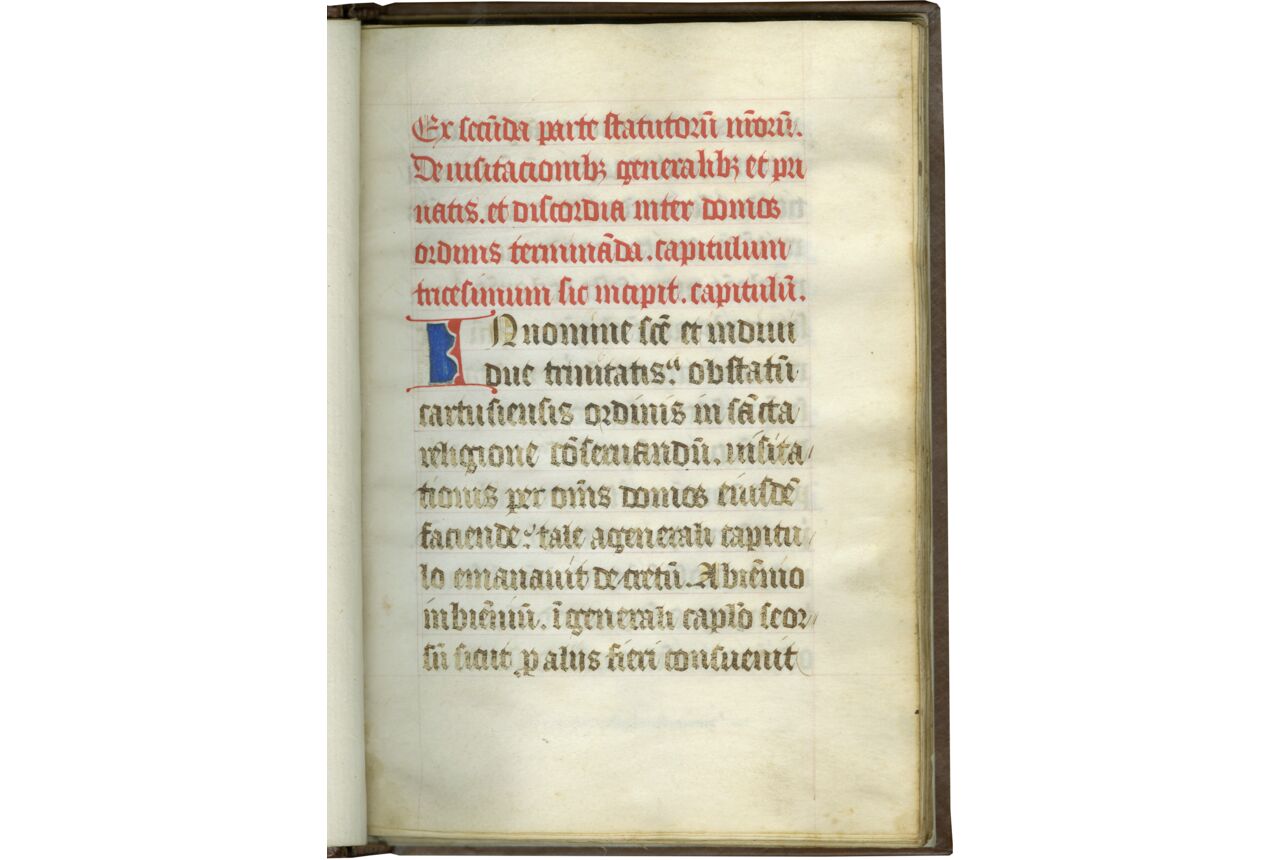 Ex scd̄a parte statutoru̅ n̅roru̅.
De uisitacionibꝫ generalibꝫ et pri
uatis. et discordia inter domos
ordinis termina̅da. capitulum
tricesimum sic incipit. capitulu̅.
IN nomine sc̅e et indiui
due trinitatis. ob statu̅
cartusiensis ordinis in sa̅cta
religione co̅seruandu̅. uisita
tionis per om̅s domos eiusde̅
faciende. tale a generali capitu
lo emanauit decretu̅. A bie̅nio
in bie̅niu̅. i̅ generali cap̅lo seor
su̅ sicut ꝑ alijs fieri consueuit